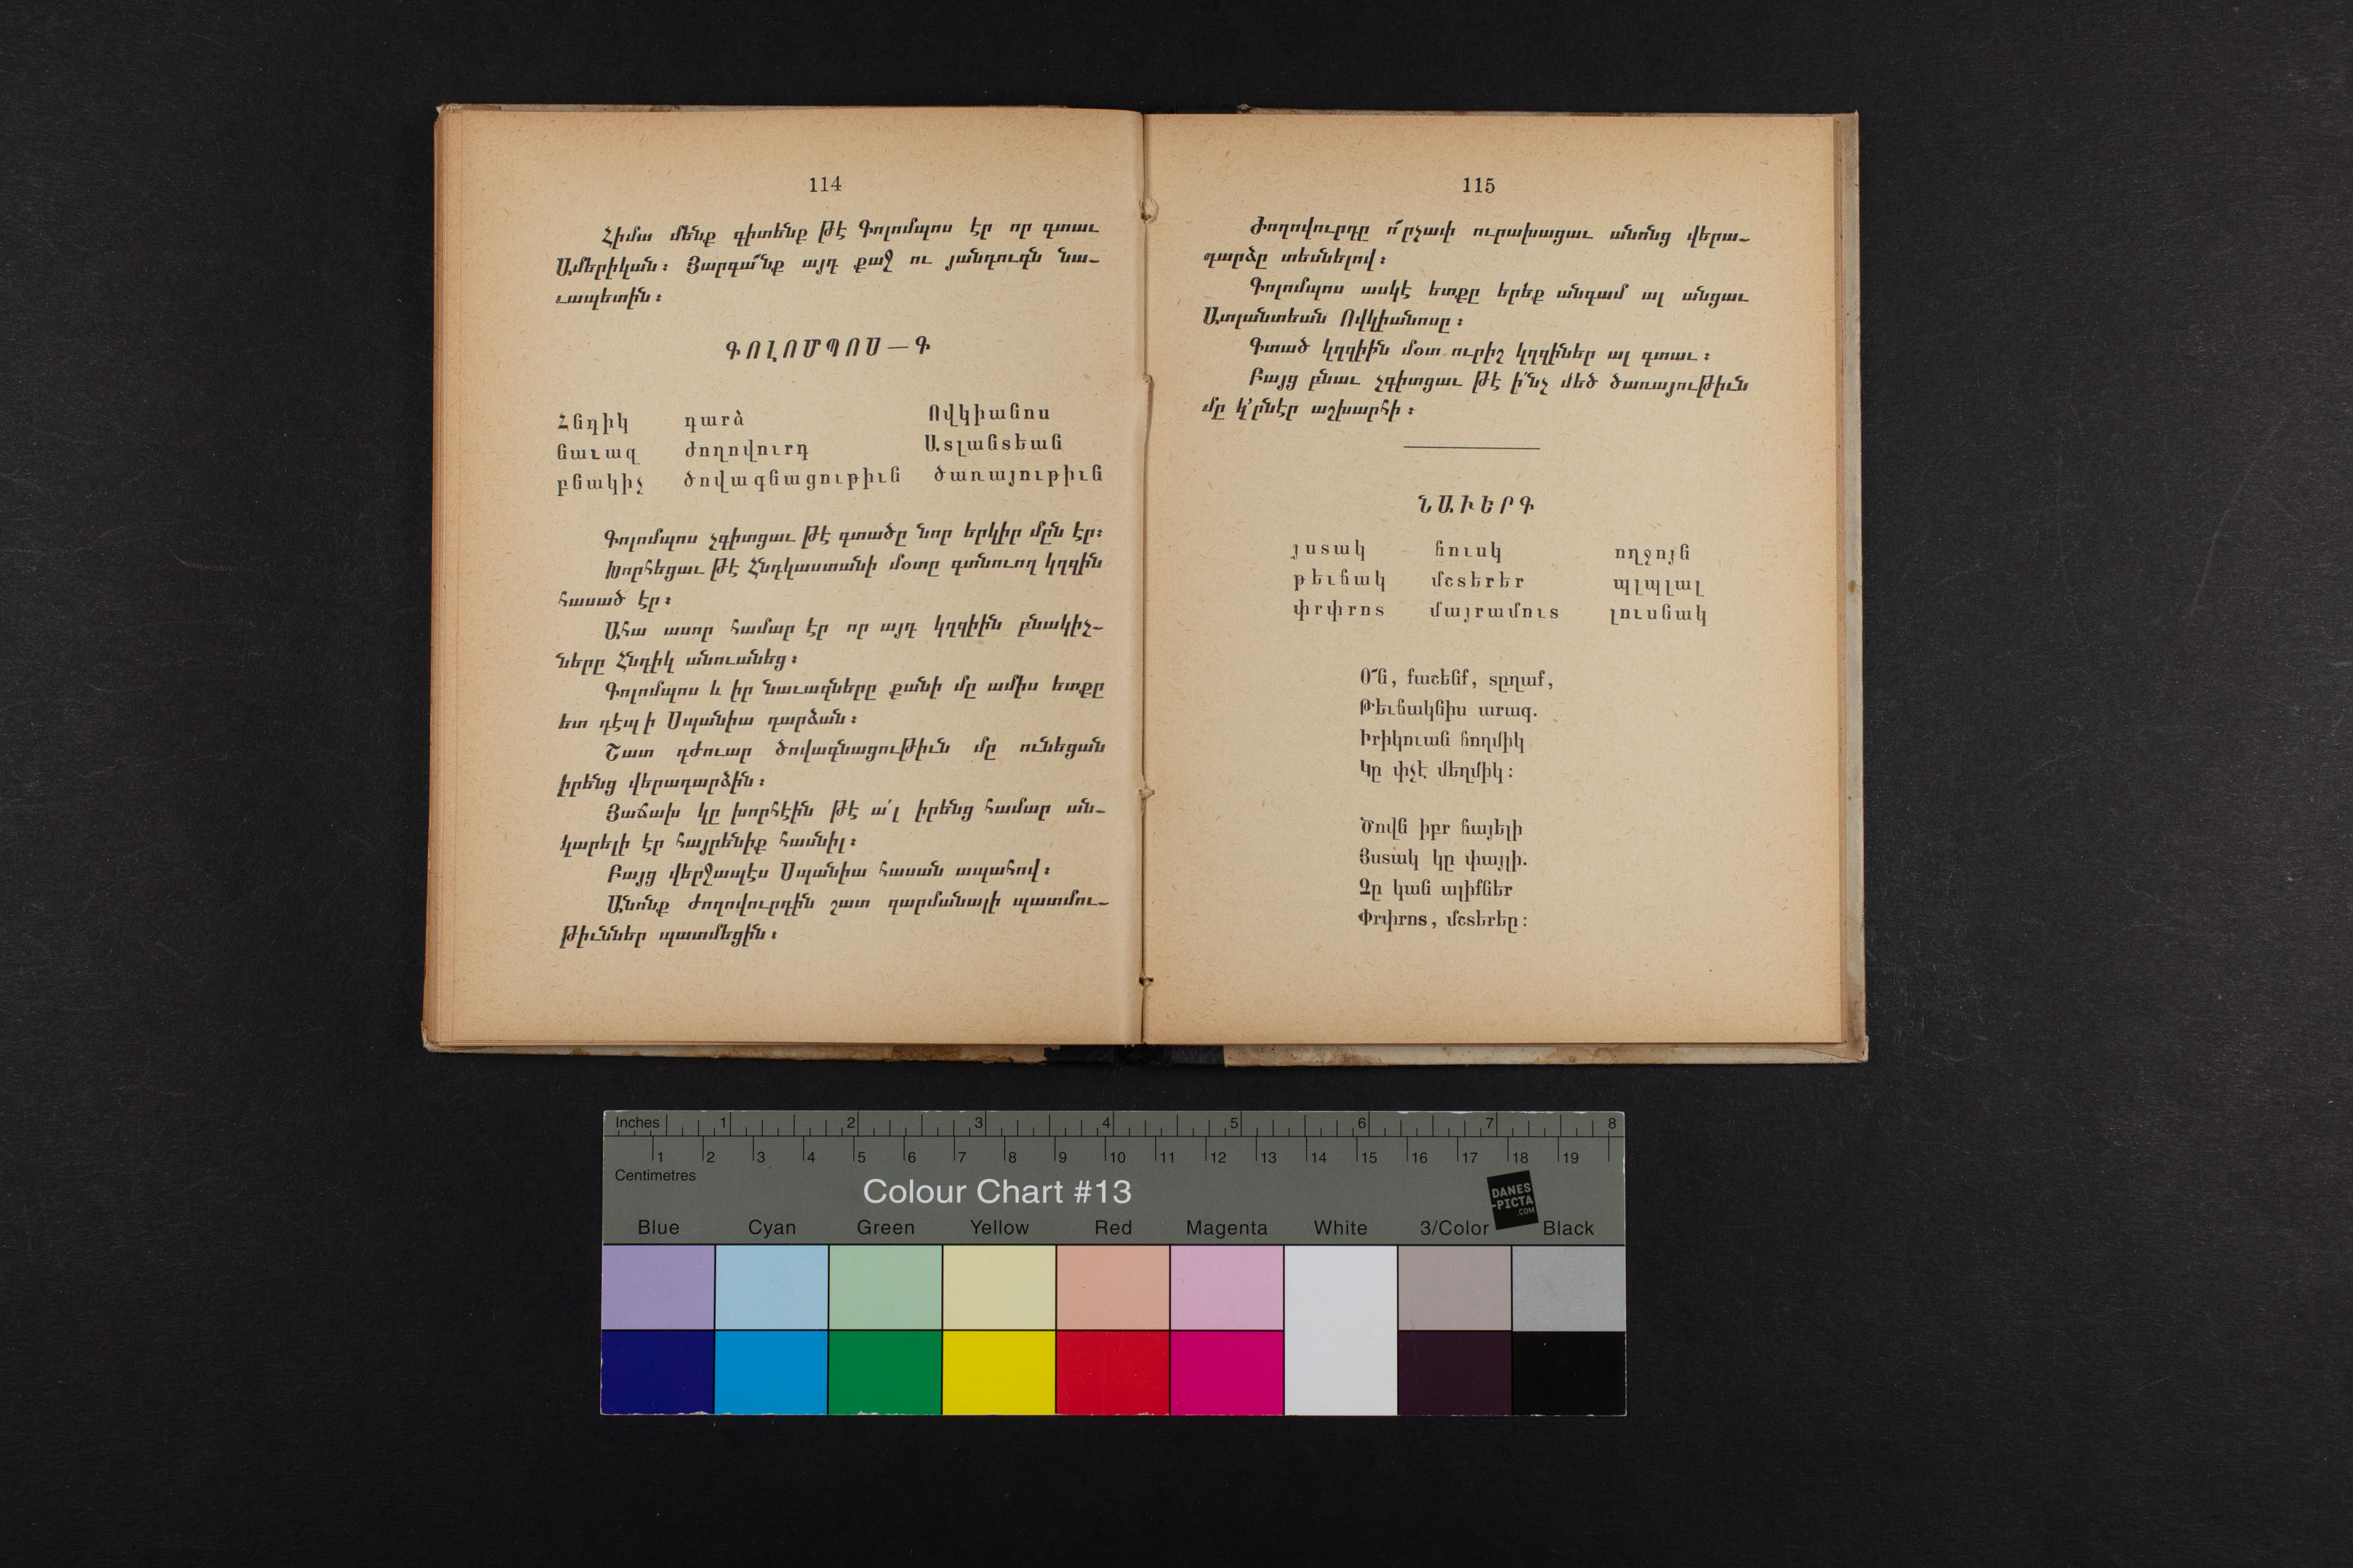 114
Հիմա մենք գիտենք թէ Գոլոմպոս էր որ գտաւ
Ամերիկան։ Յարգա՜նք այդ քաջ ու յանդուգն նա-
ւապետին։
ԳՈԼՈՄՊՈՍ — Գ
Հնդիկ դարձ Ովկիանոս
նաւազ ժողովուրդ Ատլանտեան
բնակիչ ծովագնացութիւն ծառայութիւն
Գոլոմպոս չգիտցաւ թէ գտածը նոր երկիր մըն էր։
Խորհեցաւ թէ Հնդկաստանի մօտը գտնուող կղզին
հասած էր։
Ահա ասոր համար էր որ այդ կղզիին բնակիչ-
ները Հնդիկ անուանեց։
Գոլոմպոս և իր նաւազները քանի մը ամիս ետքը
ետ դէպ ի Սպանիա դարձան։
Շատ դժուար ծովագնացութիւն մը ունեցան
իրենց վերադարձին։
Յաճախ կը խորհէին թէ ա՛լ իրենց համար ան-
կարելի էր հայրենիք հասնիլ։
Բայց վերջապէս Սպանիա հասան ապահով։
Անոնք ժողովուրդին շատ զարմանալի պատմու-
թիւններ պատմեցին։
115
Ժողովուրդը ո՜րչափ ուրախացաւ անոնց վերա-
դարձը տեսնելով։
Գոլոմպոս ասկէ ետքը երեք անգամ ալ անցաւ
Ատլանտեան Ովկիանոսը։
Գտած կղզիին մօտ ուրիշ կղզիներ ալ գտաւ։
Բայց բնաւ չգիտցաւ թէ ի՛նչ մեծ ծառայութիւն
մը կ՚ընէր աշխարհի։
ՆԱՒԵՐԳ
յստակ հուսկ ողջոյն
թեւհակ մշտերեր պլպլալ
փրփրոտ մայրամուտ լուսնակ
Օ՜ն, քաշենք, տըղաք,
Թեւհակնիս արագ.
Իրիկուան հողմիկ
Կը փչէ մեղմիկ։
Ծովն իբր հայելի
Յստակ կը փայլի.
Չը կան ալիքներ
Փրփրոտ, մշտերեր։
Inches 1 2 3 4 5 6 7 8
1 2 3 4 5 6 7 8 9 10 11 12 13 14 15 16 17 18 19
Centimetres
Colour Chart #13
DANES
-PICTA
.COM
Blue Cyan Green Yellow Red Magenta White 3/Color Black